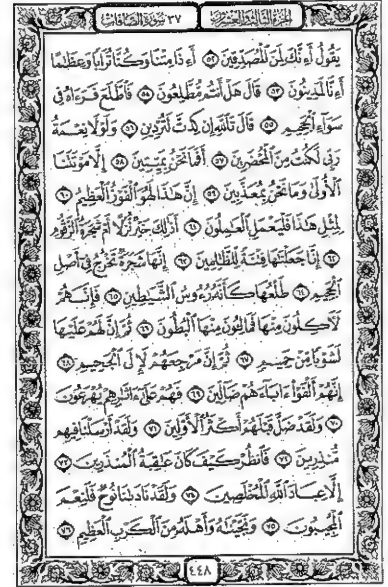 الجزء الثالث والعشرون ٣٧ سورة الصافات
يَقُولُ أَءِنَّكَ لَمِنَ ٱلْمُصَدِّقِينَ ٥٢ أَءِذَا مِتْنَا وَكُنَّا تُرَابًا وَعِظَٰمًا
أَءِنَّا لَمَدِينُونَ ٥٣ قَالَ هَلْ أَنتُم مُّطَّلِعُونَ ٥٤ فَٱطَّلَعَ فَرَءَاهُ فِى
سَوَآءِ ٱلْجَحِيمِ ٥٥ قَالَ تَٱللَّهِ إِن كِدتَّ لَتُرْدِينِ ٥٦ وَلَوْلَا نِعْمَةُ
رَبِّى لَكُنتُ مِنَ ٱلْمُحْضَرِينَ ٥٧ أَفَمَا نَحْنُ بِمَيِّتِينَ ٥٨ إِلَّا مَوْتَتَنَا
ٱلْأُولَىٰ وَمَا نَحْنُ بِمُعَذَّبِينَ ٥٩ إِنَّ هَٰذَا لَهُوَ ٱلْفَوْزُ ٱلْعَظِيمُ ٦٠
لِمِثْلِ هَٰذَا فَلْيَعْمَلِ ٱلْعَٰمِلُونَ ٦١ أَذَٰلِكَ خَيْرٌ نُّزُلًا أَمْ شَجَرَةُ ٱلزَّقُّومِ
٦٢ إِنَّا جَعَلْنَٰهَا فِتْنَةً لِّلظَّٰلِمِينَ ٦٣ إِنَّهَا شَجَرَةٌ تَخْرُجُ فِىٓ أَصْلِ
ٱلْجَحِيمِ ٦٤ طَلْعُهَا كَأَنَّهُۥ رُءُوسُ ٱلشَّيَٰطِينِ ٦٥ فَإِنَّهُمْ
لَـَٔاكِلُونَ مِنْهَا فَمَالِـُٔونَ مِنْهَا ٱلْبُطُونَ ٦٦ ثُمَّ إِنَّ لَهُمْ عَلَيْهَا
لَشَوْبًا مِّنْ حَمِيمٍ ٦٧ ثُمَّ إِنَّ مَرْجِعَهُمْ لَإِلَى ٱلْجَحِيمِ ٦٨
إِنَّهُمْ أَلْفَوْا۟ ءَابَآءَهُمْ ضَآلِّينَ ٦٩ فَهُمْ عَلَىٰٓ ءَاثَٰرِهِمْ يُهْرَعُونَ
٧٠ وَلَقَدْ ضَلَّ قَبْلَهُمْ أَكْثَرُ ٱلْأَوَّلِينَ ٧١ وَلَقَدْ أَرْسَلْنَا فِيهِم
مُّنذِرِينَ ٧٢ فَٱنظُرْ كَيْفَ كَانَ عَٰقِبَةُ ٱلْمُنذَرِينَ ٧٣
إِلَّا عِبَادَ ٱللَّهِ ٱلْمُخْلَصِينَ ٧٤ وَلَقَدْ نَادَىٰنَا نُوحٌ فَلَنِعْمَ
ٱلْمُجِيبُونَ ٧٥ وَنَجَّيْنَٰهُ وَأَهْلَهُۥ مِنَ ٱلْكَرْبِ ٱلْعَظِيمِ ٧٦
٤٤٨